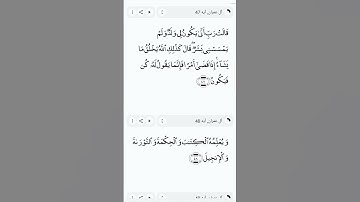 آل عمران آية 47
قَالَتْ رَبِّ أَنَّىٰ يَكُونُ لِي وَلَدٌ وَلَمْ
يَمْسَسْنِي بَشَرٌ ۖ قَالَ كَذَٰلِكِ اللَّهُ يَخْلُقُ مَا
يَشَاءُ ۚ إِذَا قَضَىٰ أَمْرًا فَإِنَّمَا يَقُولُ لَهُ كُن
فَيَكُونُ
آل عمران آية 48
وَيُعَلِّمُهُ الْكِتَابَ وَالْحِكْمَةَ وَالتَّوْرَاةَ
وَالْإِنجِيلَ